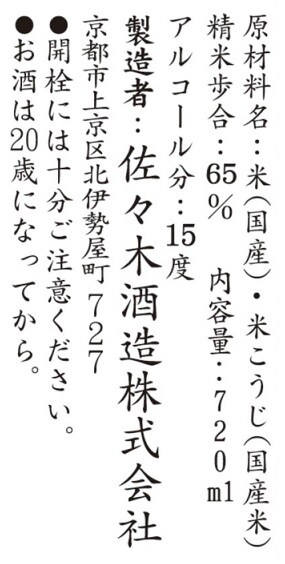 原材料名：米（国産）・米こうじ（国産米）
精米歩合：65％　内容量：720ml
アルコール分：15度
製造者：佐々木酒造株式会社
京都市上京区北伊勢屋町727
●開栓には十分ご注意ください。
●お酒は20歳になってから。